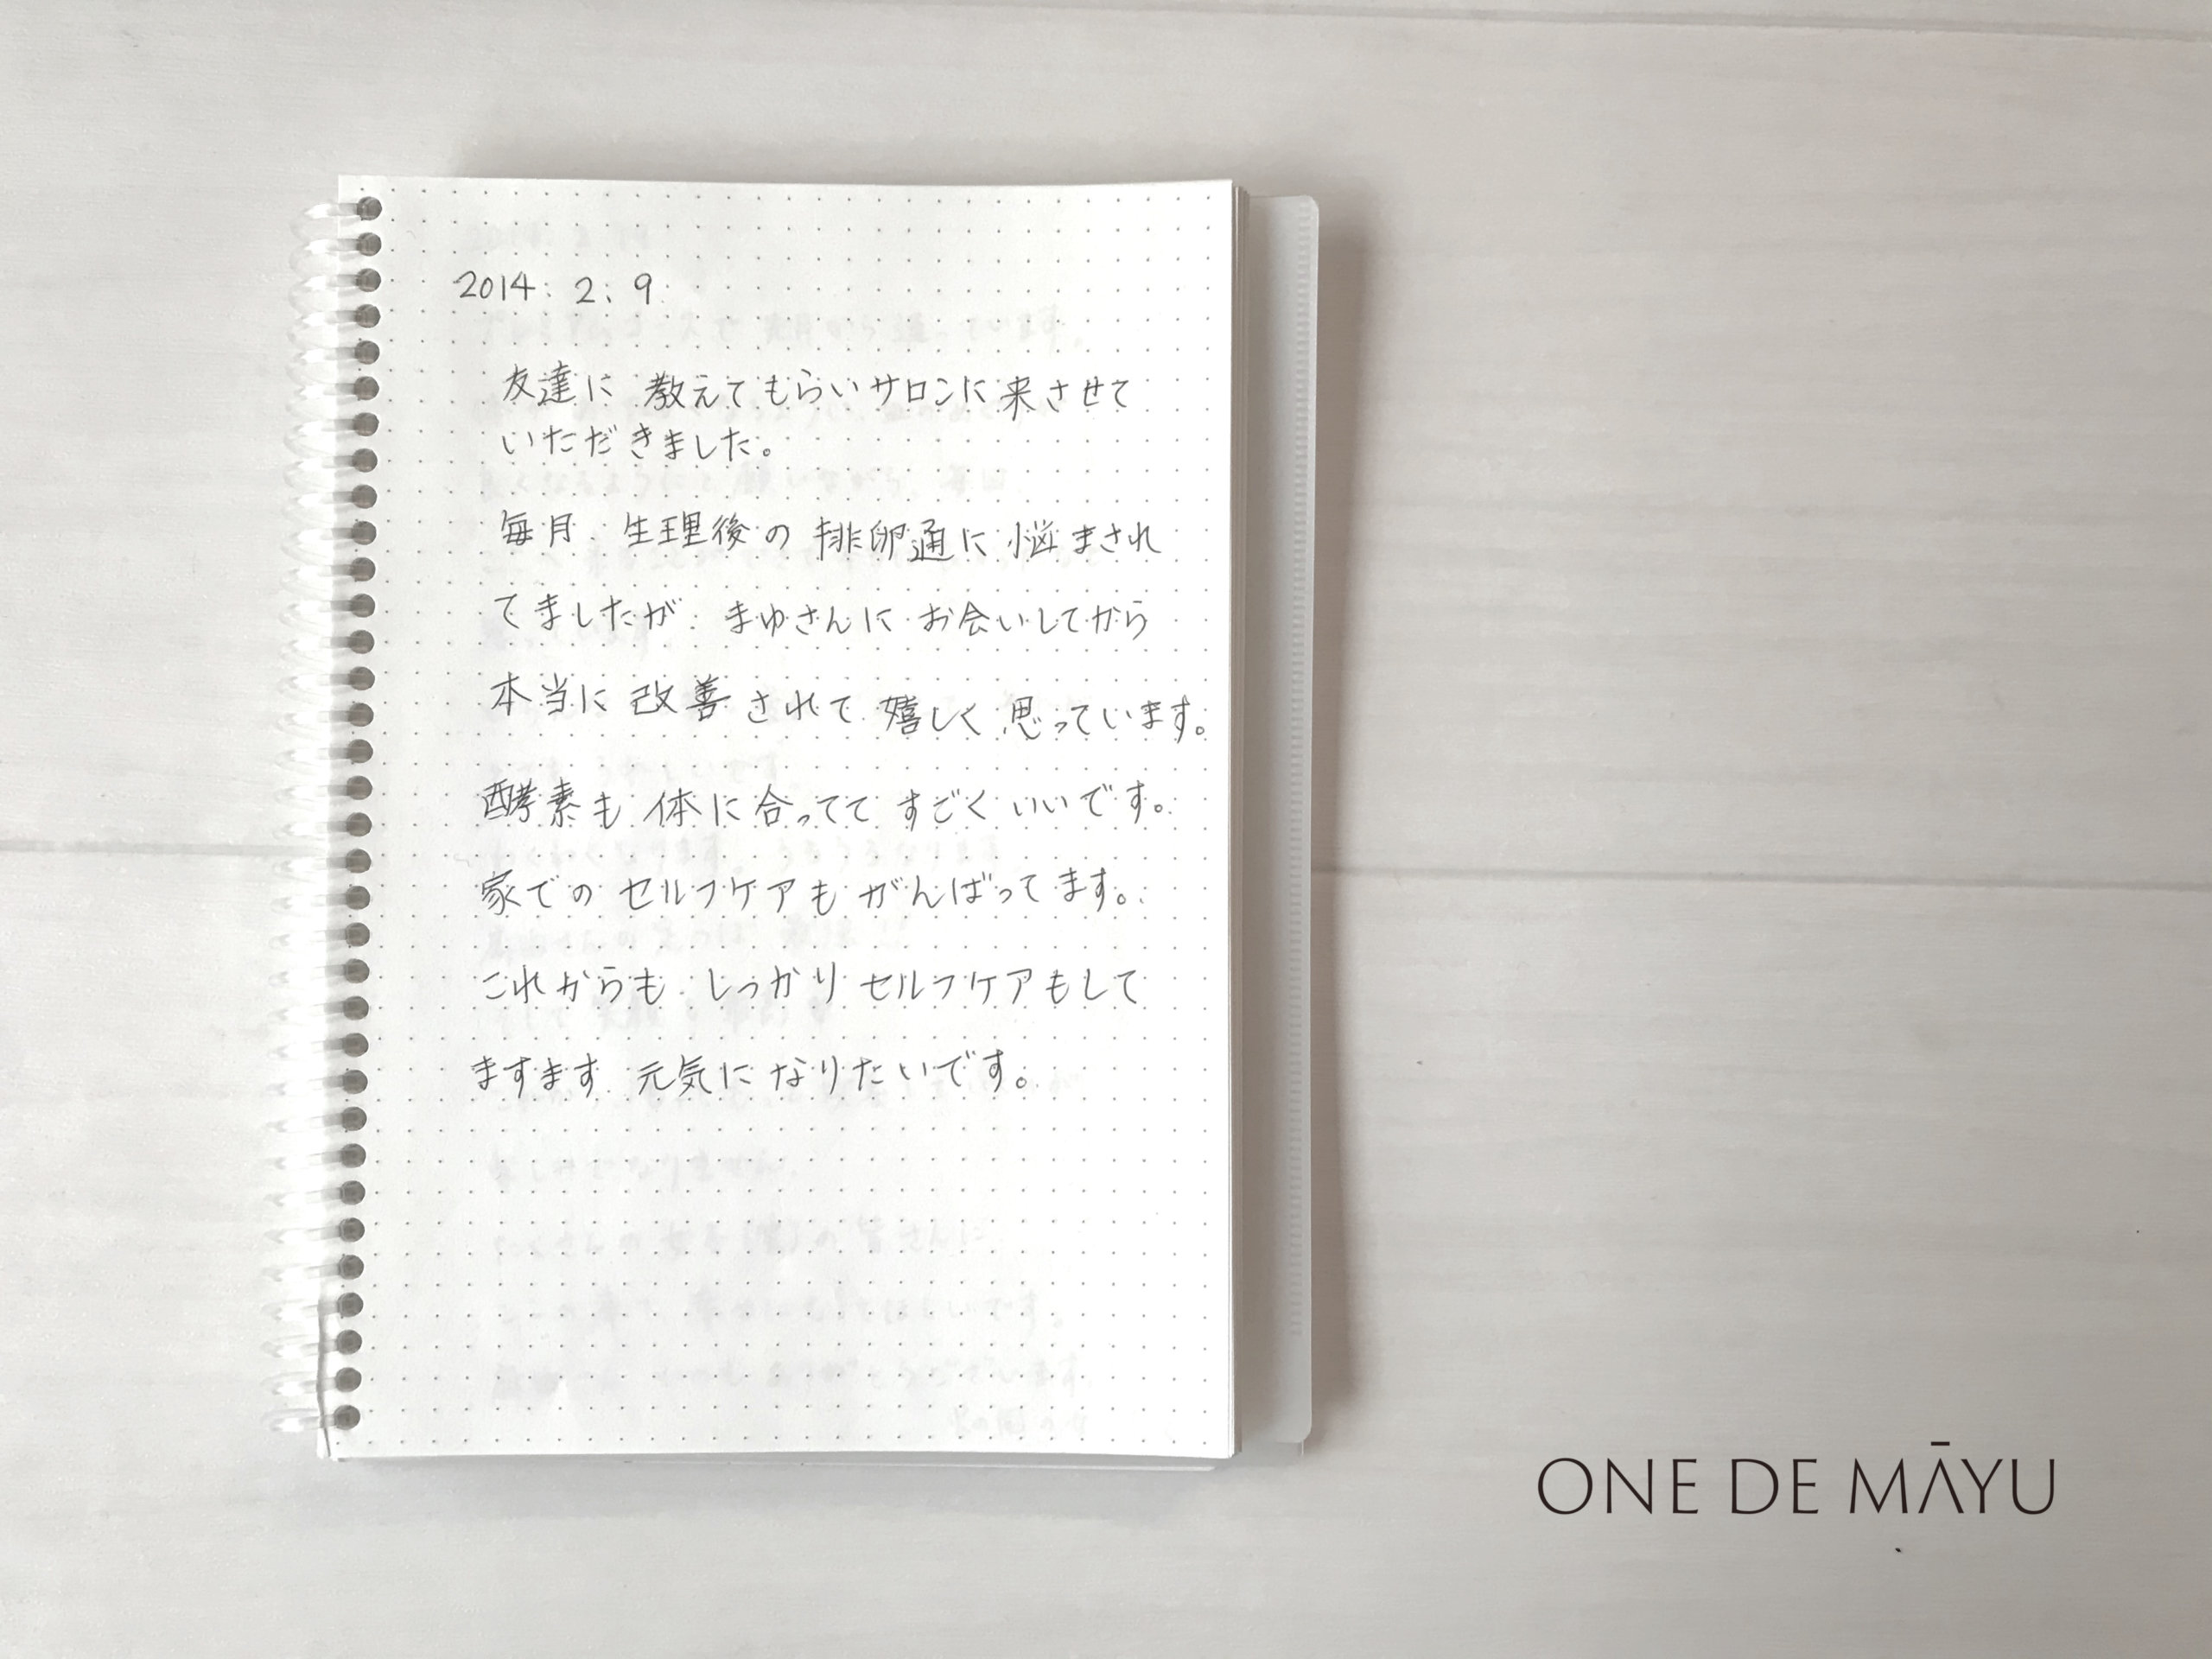 2014. 2. 9
友達に 教えてもらいサロンに来させて
いただきました。
毎月 生理後の排卵通に悩まされ
てましたが、まゆさんにお会いしてから
本当に改善されて嬉しく思っています。
酵素も体に合ってて すごくいいです。
家でのセルフケアもがんばってます。
これからも しっかりセルフケアもして
ますます 元気になりたいです。
ONE DE MĀYU